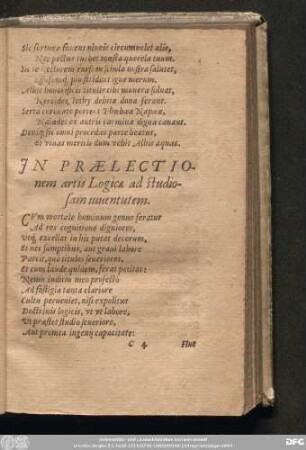 Sic fortuna fauens niueis circumuolet alis,
Nec pectus turbet mœsta querela tuum.
rursus in schola nostra saluset,
Albis honorificis titulis tibi munera soluat,
Nereides, Tethy debita dona ferant.
Serta coronato portet Phœbæa Napæa,
Naiades ex antris carmina digna canant.
Deniq; sic omni procedas parte beatus,
Et viuas meritis dum vehit Albis aquas.
IN PRÆLECTIO-
nem artis Logicæ ad studio-
sam iuuentutem.
CVm mortale hominum genus feratur
Ad res cognitione digniores,
Vtq; excellat in his putat decorum,
Et nec sumptibus, aut graui labore
Parcit, quo titulos seueriores,
Et cum laude queat, ferat petitos:
Nemo iudicio meo profecto
Ad fastigia tanta clariore
Cultu perueniet, nisi expolitur
Doctrinis logicis, vt vt labore,
Vt præstet studio seueriore,
Aut promta ingenij capacitate:
C 4 Huc
DFG